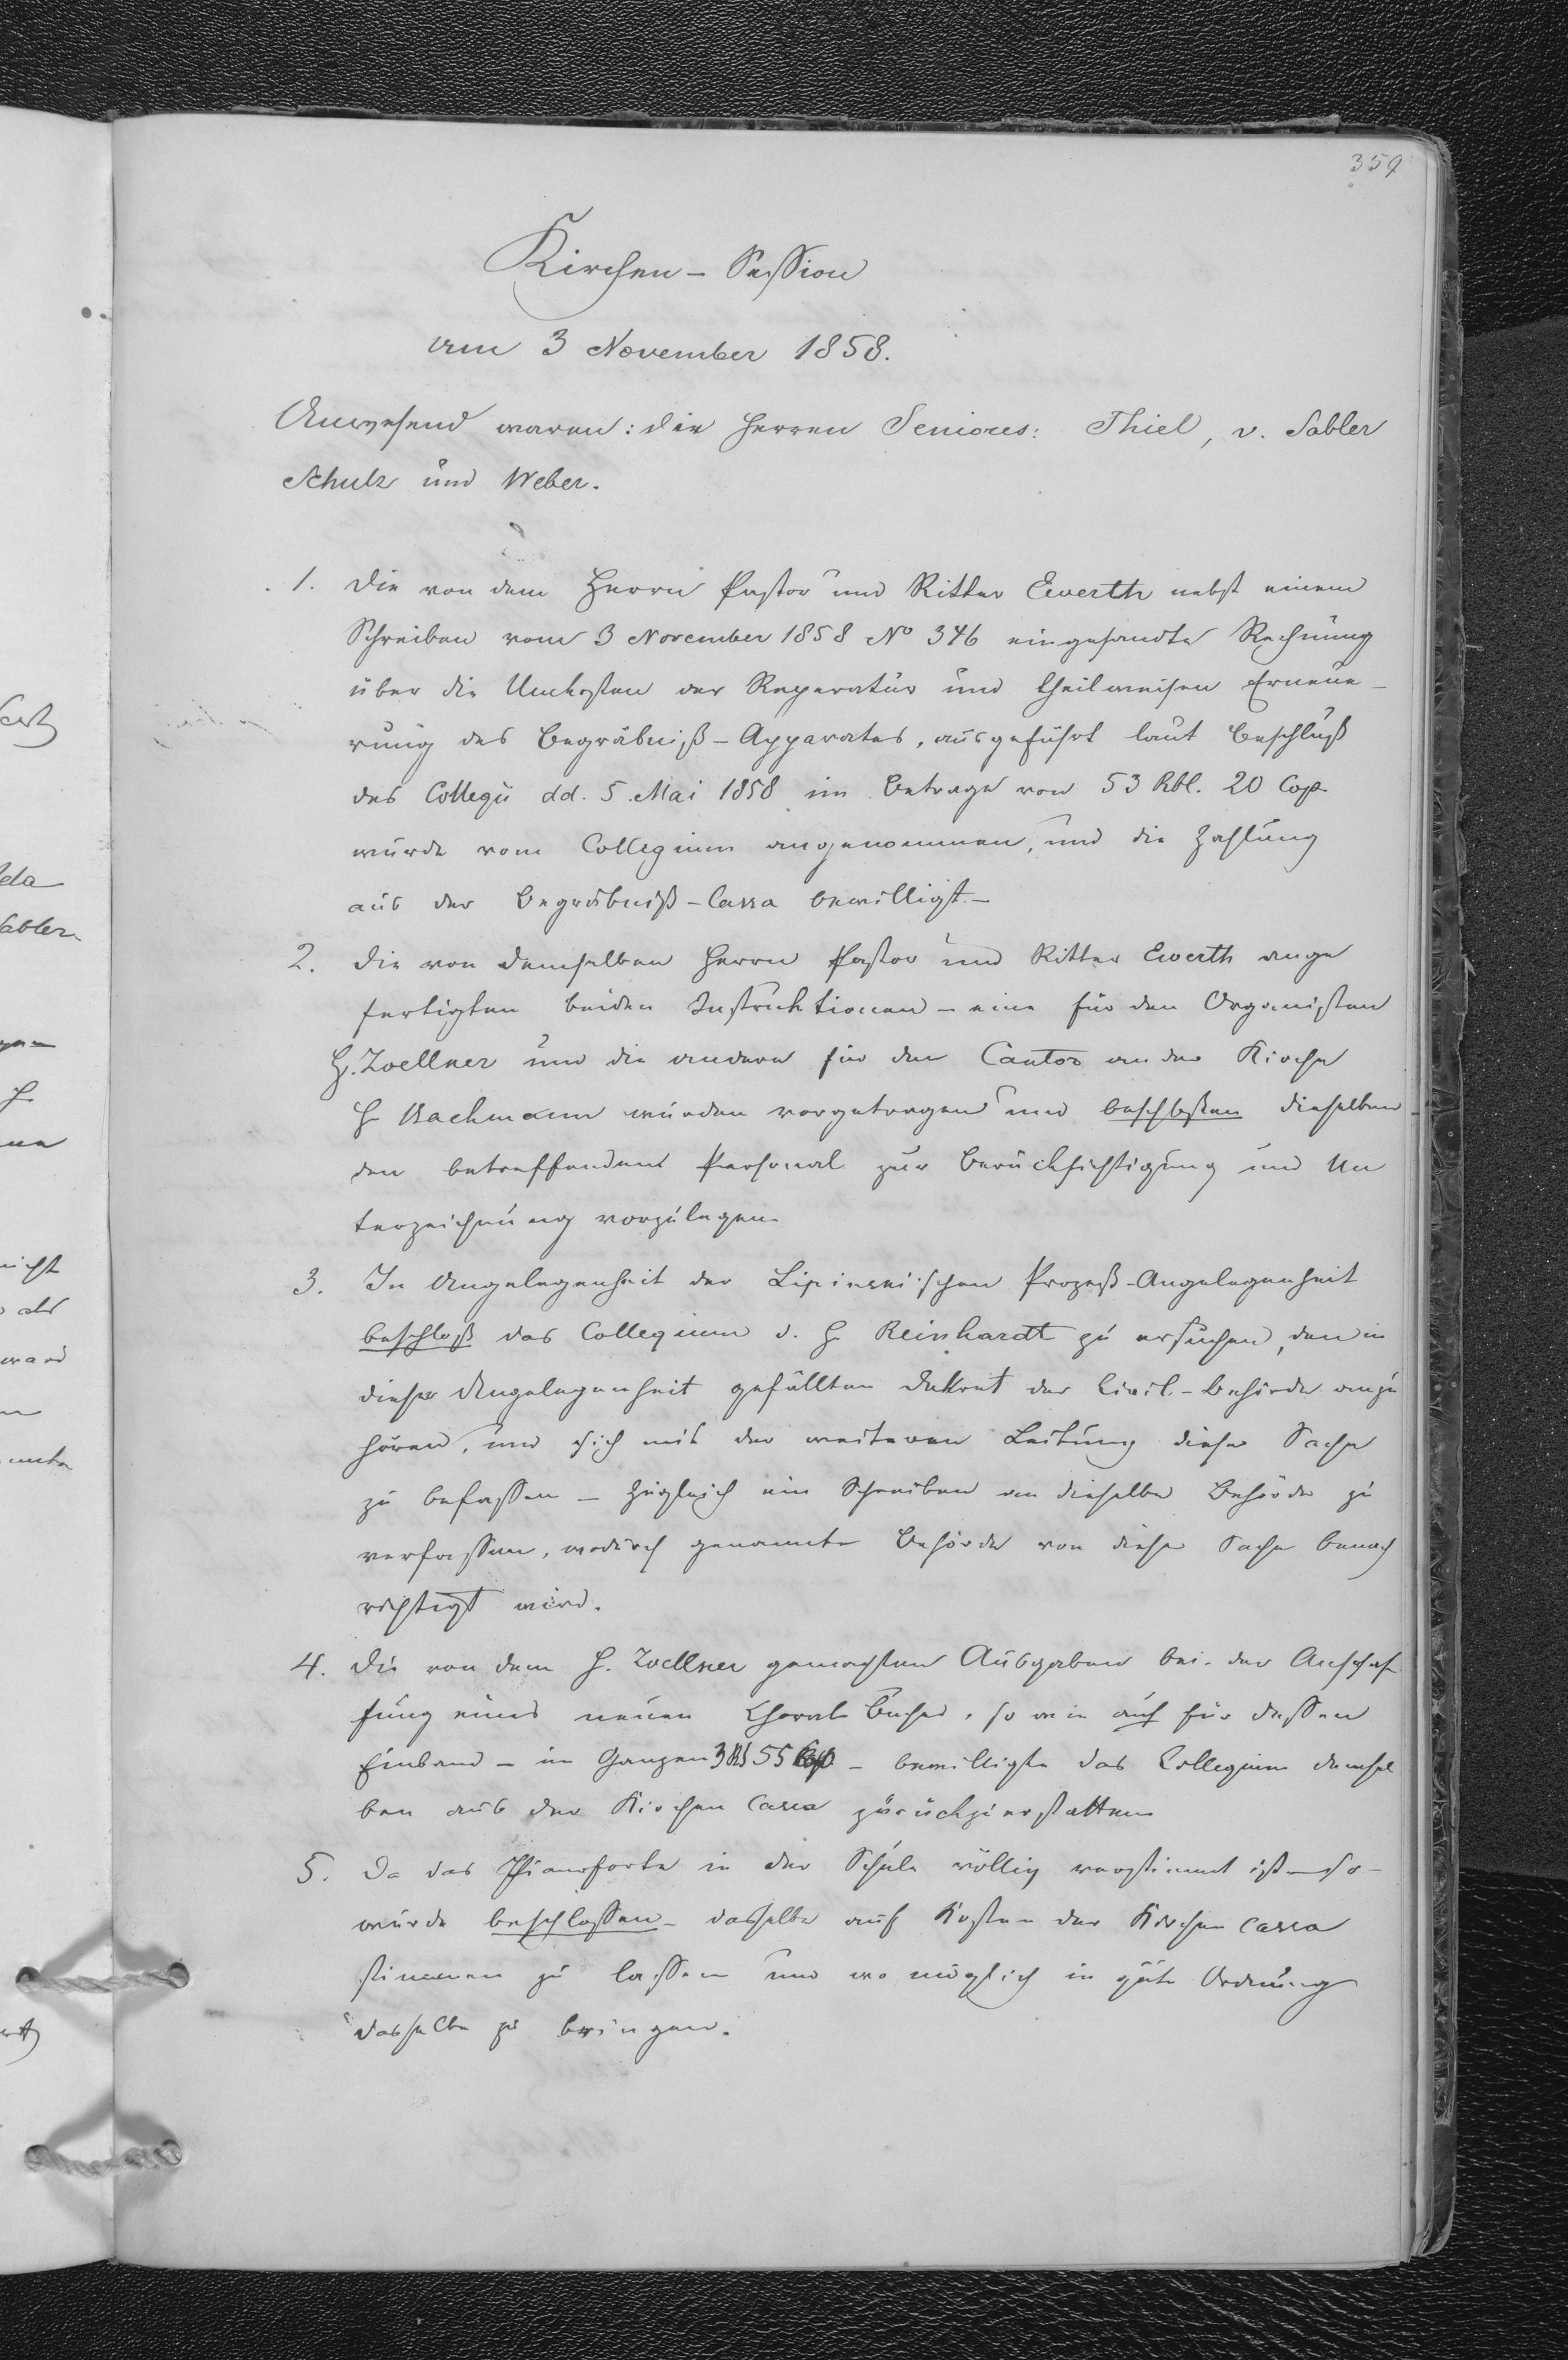 359
Kirchen-Session
am 3 November 1858.
Anwesend waren: die Herren Seniores: Thiel, v. Sabler
Schulz und Weber.
1. Die von dem Herrn Pastor und Ritter Ewerth nebst einem
Schreiben vom 3 November 1858 No 346 eingesandte Rechnung
über die Unkosten der Reparatur und theilweisen Erneue-
rung des Begräbniß-Apparates, ausgeführt laut Beschluß
des Collegii dd. 5. Mai 1858 im Betrage von 53 Rbl. 20 Cop
wurde vom Collegium angenommen, und die Zahlung
aus der Begräbniß-Cassa bewilligt.-
2. Die von demselben Herrn Pastor und Ritter Ewerth ange
fertigten beiden Instruktionen - eine für den Organisten
H. Zoellner und die andere für den Cantor an der Kirche
H Bachmann wurden vorgetragen und beschloßen dieselben
den betreffendem Personal zur Berücksichtigung und Un
terzeichnung vorzulegen
3. In Angelegenheit der Lipinski'schen Prozeß-Angelegenheit
beschloß das Collegium d. H. Reinhardt zu ersuchen, den in
dieser Angelegenheit gefällten Dekret der Civil-Behörde anzu
hören, und sich mit der weiteren Leitung dieser Sache
zu befassen - zugleich ein Schreiben an dieselbe Behörde zu
verfassen, wodurch genannte Behörde von dieser Sache benach
richtigt wird.
4. Die von dem H. Zoellner gemachten Ausgaben bei der Anschaf
fung eines neuen Choral Buches, so wie auch für dessen
Einband - im Ganzen 3 Rbl 55 Cop - bewilligte das Collegium demsel
ben aus der Kirchen Cassa zurückzuerstatten
5. Da das Pianoforte in der Schule völlig verstimmt ist - so -
wurde beschlossen - dasselbe auf Kosten der Kirchen Cassa
stimmen zu lassen und wo möglich in gute Ordnung
dasselbe zu bringen.